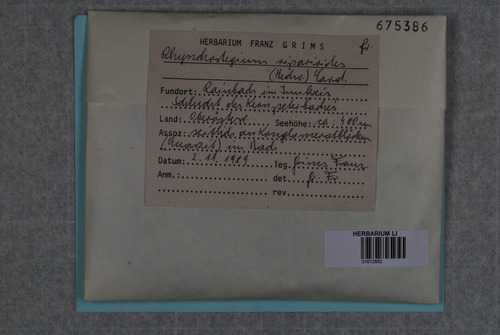 675386
HERBARIUM FRANZ GRIMS fr.
Rhynchostegium riparioides
(Hedw.) Card.
Fundort: Rainbach im Innkreis
Schlucht des
Land: Oberösterr. Seehöhe: ca. 400m
Assoz: an Konglomeratblöcken
(Quarzit) im Bach
Datum: 2.11.1989 leg. Grims Franz
Anm.: det. Gr. Fr.
rev.
HERBARIUM LI